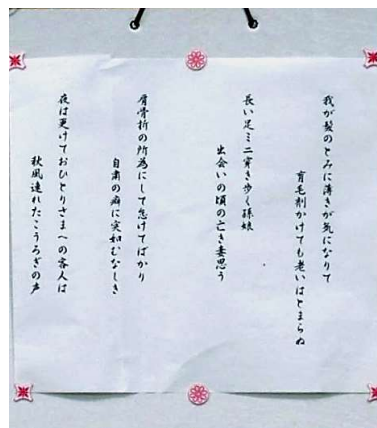 我が髪のとみに薄きが気になりて
育毛剤かけても老いはとまらぬ
長い足ミニ穿き歩く孫娘
出会いの頃の亡き妻思う
肩骨折の所為にして怠けてばかり
自粛の癖に突如むなしき
夜は更けておひとりさまへの客人は
秋風連れたこうろぎの声